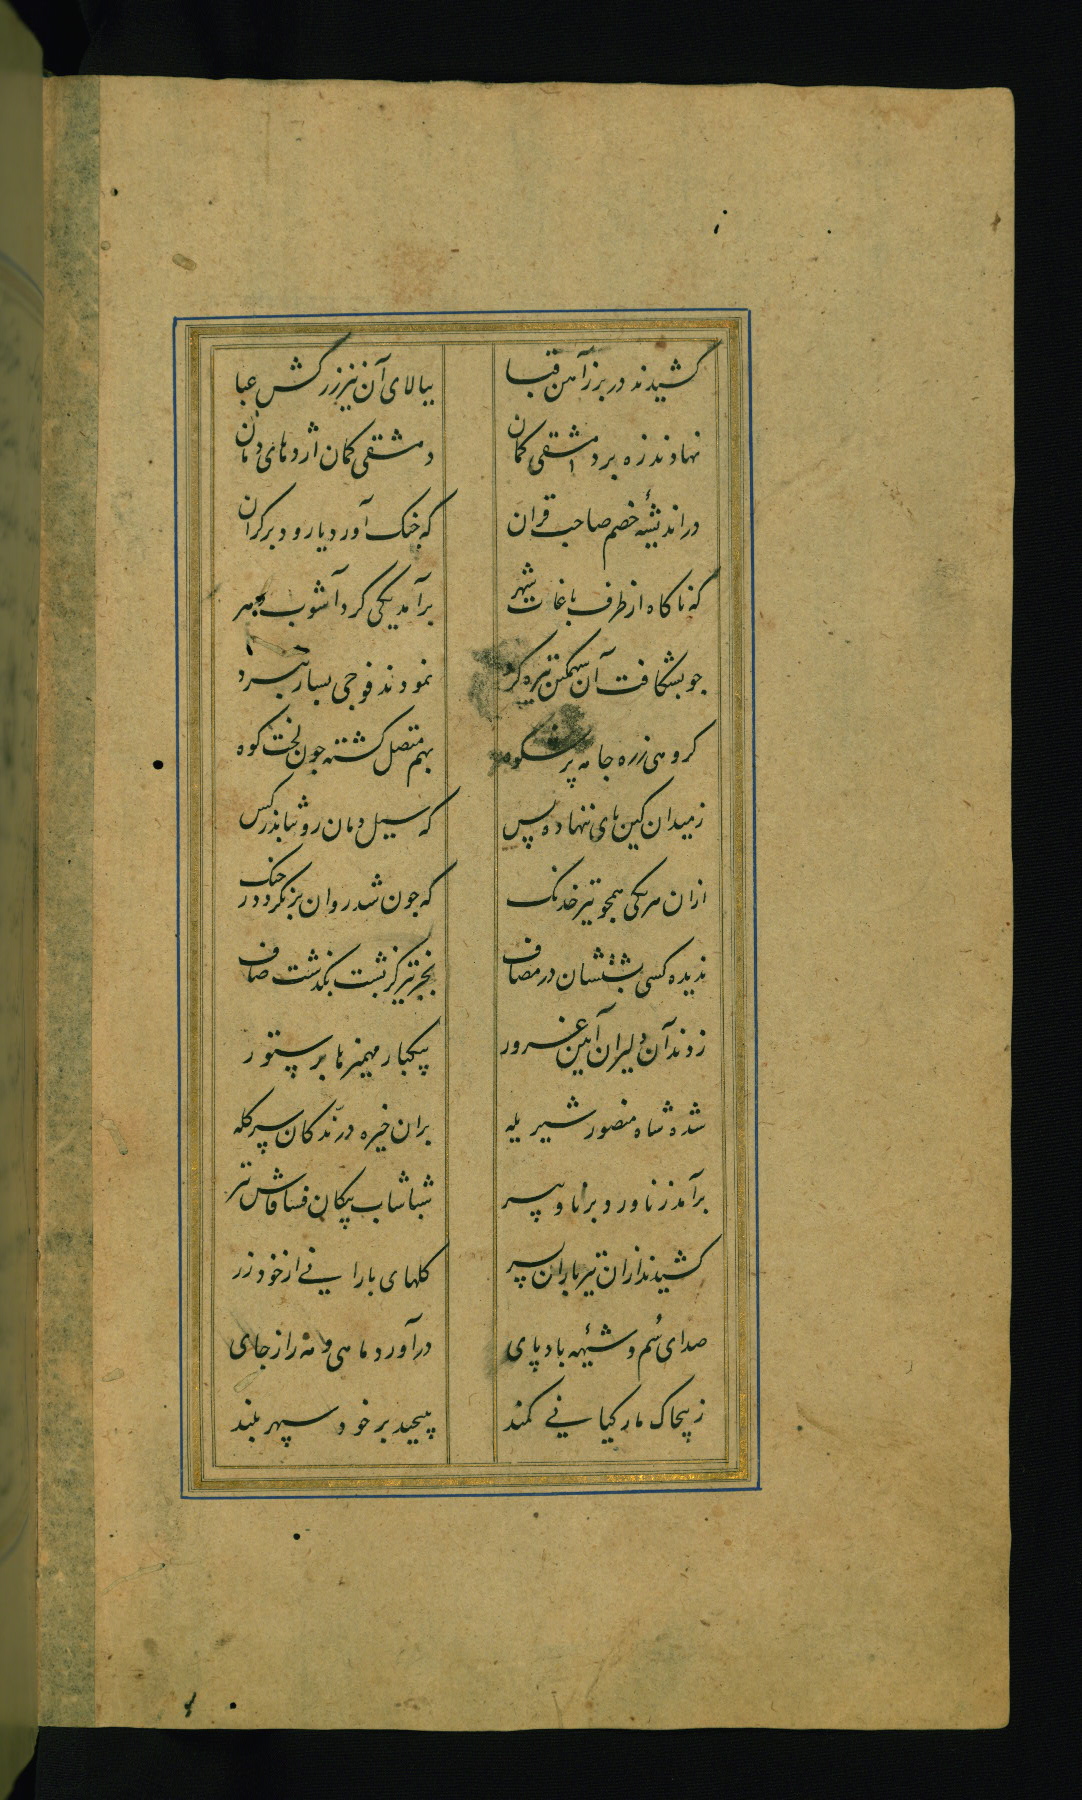 کشیدند در بر ز آهن قبا ببالای آن نیز زرکش عبا
نهادند زه بر دمشقی کمان دمشقی کمان اژدهای دمان
در اندیشهٔ خصم صاحب قران که جنک آورد یا رود بر کران
که ناکاه از طرف باغات شهر برآمد یکی کرد آشوب بهر
جو بشکافت آن سهمکین تیره کرد نمودند فوجی بساز نبرد
کروهی زره جامه پر شکوه بهم متصل کشته جون لخت کوه
ز میدان کین پای ننهاده پس که سیل دمان رو نتابد ز کس
ازان هر یکی همجو تیر خدنک که جون شد روان برنکردد ز جنک
ندیده کسی پشتشان در مصاف بجز تیر کز پشت بکذشت صاف
زدند آن دلیران آهین غرور بیکبار مهمیزها بر ستور
شده شاه منصور شیر یله بران خیره درّندکان سر کله
برآمد ز ناورد برنا و پیر شباشاب پیکان فشافاش تیر
کشیدند ازان تیرباران بسر کلهای بارانی از خود زر
صدای سُم و شیهٔه بادپای درآورد ماهی و مه را ز جای
ز پیجاک مار کیانی کمند بپیجید بر خود سپهر بلند